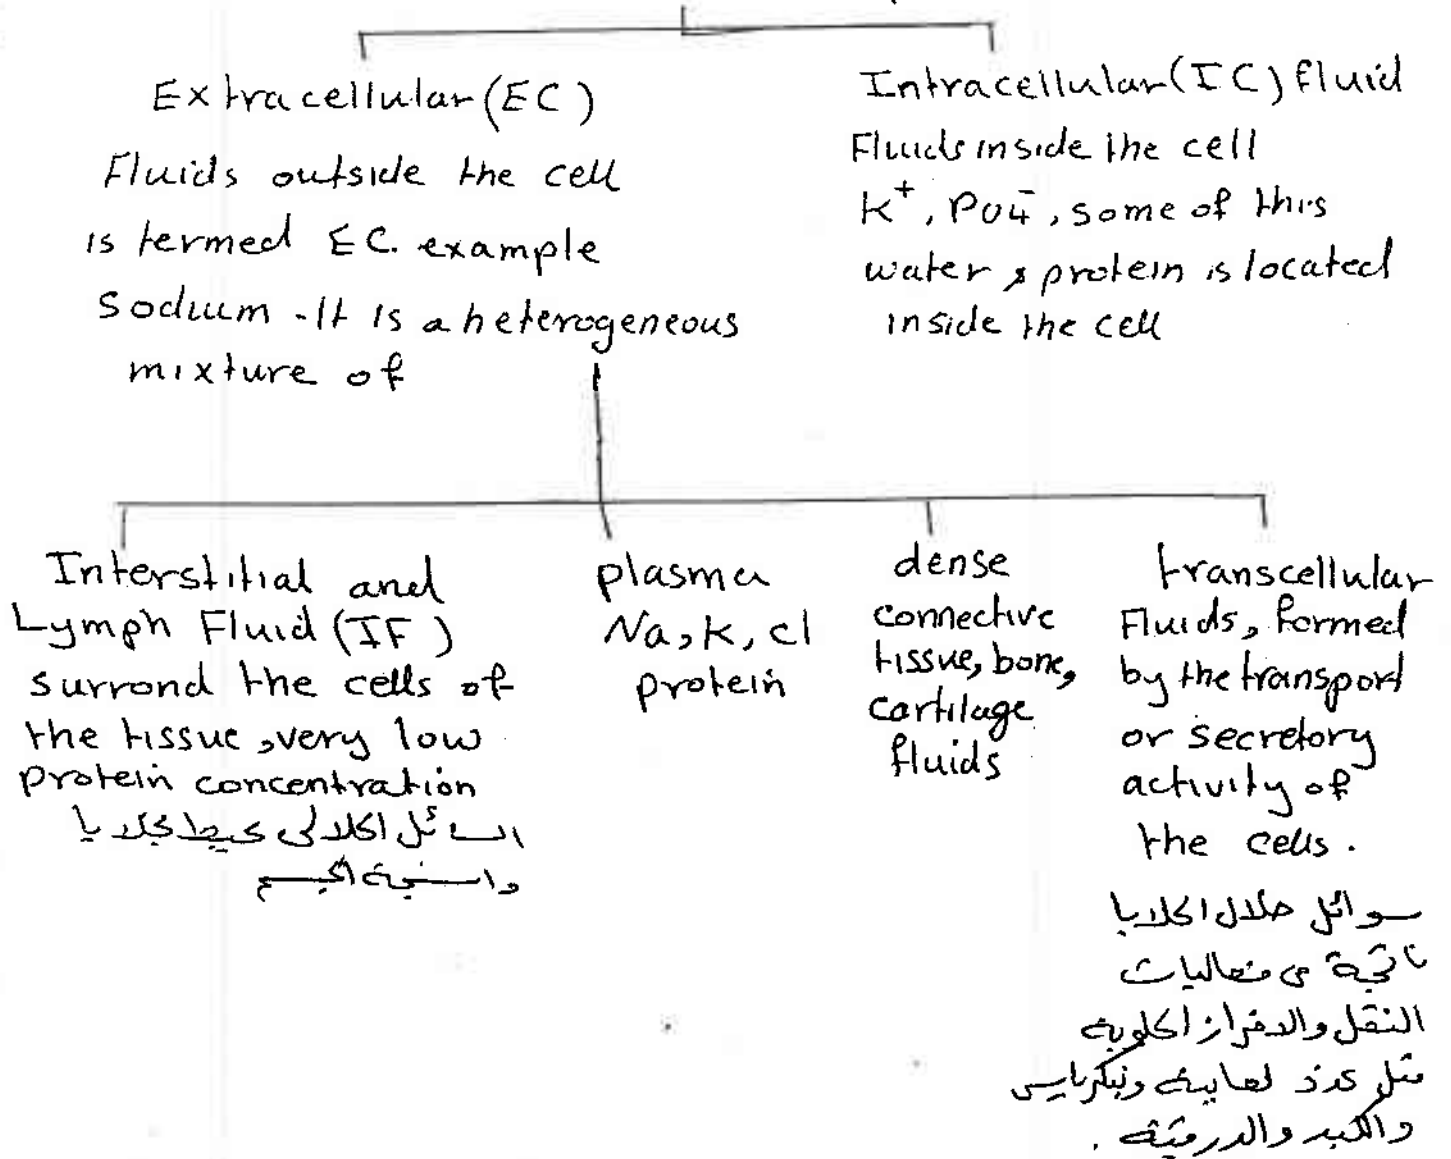 Extracellular (EC)
Fluids outside the cell
is termed EC. example
Sodium - It is a heterogeneous
mixture of
Intracellular (IC) fluid
Fluids inside the cell
K⁺, PO4⁻, some of this
water & protein is located
inside the cell
Interstitial and
Lymph Fluid (IF)
surrond the cells of
the tissue, very low
protein concentration
السائل الخلالي يحيط بخلايا
وانسجة الجسم
plasma
Na, K, cl
protein
dense
connective
tissue, bone,
cartilage
fluids
transcellular
Fluids, formed
by the transport
or secretory
activity of
the cells.
سوائل خلال الخلايا
ناتجة من فعاليات
النقل والافراز الخلوية
مثل غدد لعابية وبنكرياس
والكبد والدرقية .